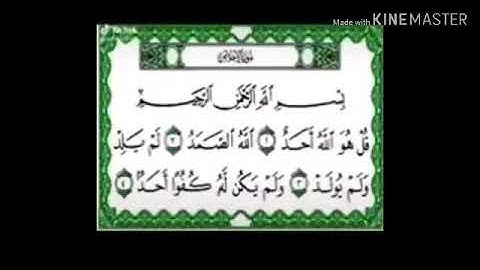 Made with KINEMASTER
TikTok
سورة الإخلاص
بِسْمِ اللَّهِ الرَّحْمَٰنِ الرَّحِيمِ
قُلْ هُوَ اللَّهُ أَحَدٌ ١ اللَّهُ الصَّمَدُ ٢ لَمْ يَلِدْ
وَلَمْ يُولَدْ ٣ وَلَمْ يَكُن لَّهُ كُفُوًا أَحَدٌ ٤